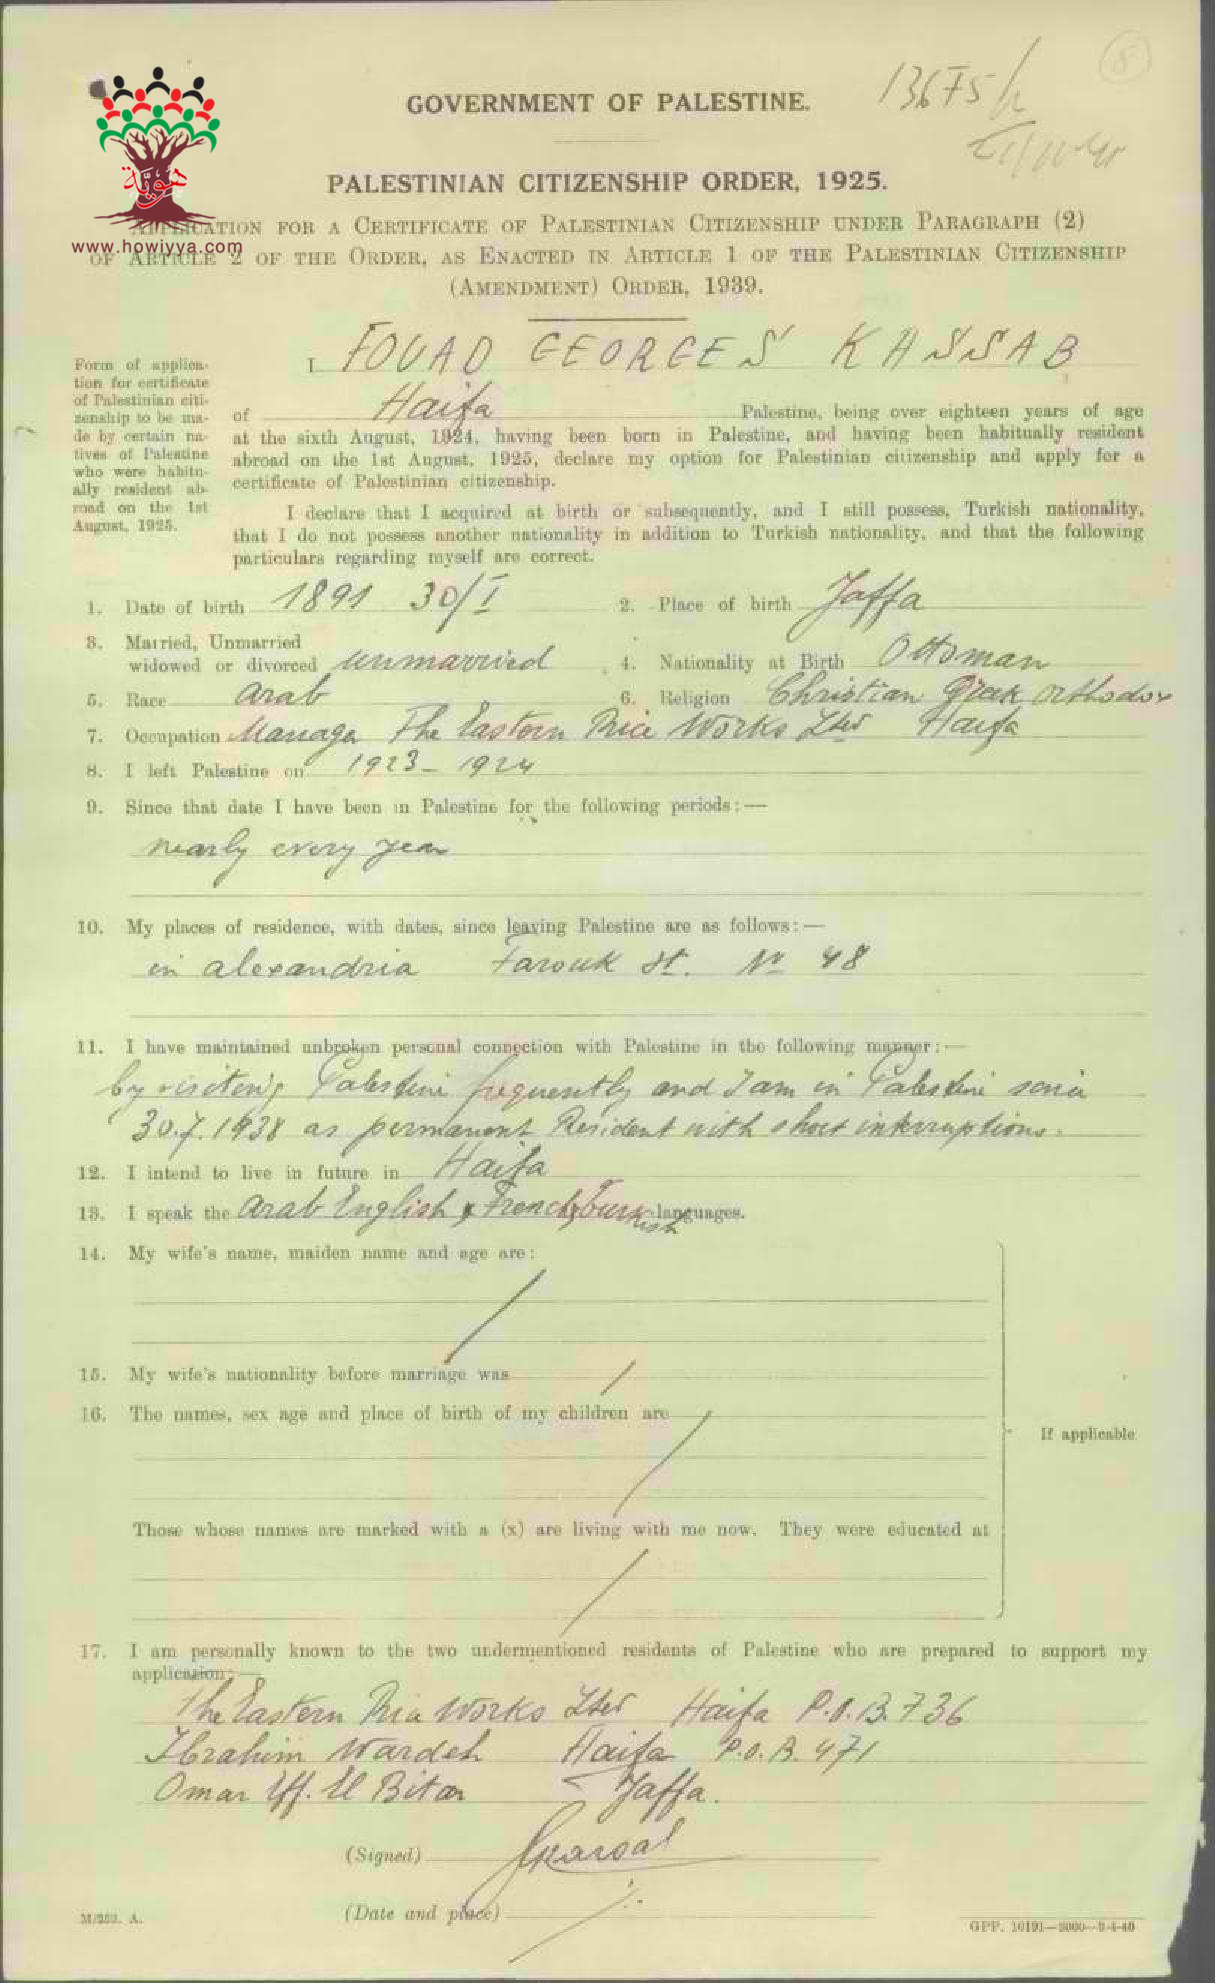 GOVERNMENT OF PALESTINE.
13675/h
8
PALESTINIAN CITIZENSHIP ORDER, 1925.
هويّة
www.howiyya.com
APPLICATION FOR A CERTIFICATE OF PALESTINIAN CITIZENSHIP UNDER PARAGRAPH (2)
OF ARTICLE 2 OF THE ORDER, AS ENACTED IN ARTICLE 1 OF THE PALESTINIAN CITIZENSHIP
(AMENDMENT) ORDER, 1939.
Form of applica-
tion for certificate
of Palestinian citi-
zenship to be ma-
de by certain na-
tives of Palestine
who were habitu-
ally resident ab-
road on the 1st
August, 1925.
I FOUAD GEORGES KASSAB
of Haifa Palestine, being over eighteen years of age
at the sixth August, 1924, having been born in Palestine, and having been habitually resident
abroad on the 1st August, 1925, declare my option for Palestinian citizenship and apply for a
certificate of Palestinian citizenship.
I declare that I acquired at birth or subsequently, and I still possess, Turkish nationality,
that I do not possess another nationality in addition to Turkish nationality, and that the following
particulars regarding myself are correct.
1. Date of birth 1891 30/I 2. Place of birth Jaffa
3. Married, Unmarried
widowed or divorced unmarried 4. Nationality at Birth Ottoman
5. Race arab 6. Religion Christian Greek Orthodox
7. Occupation Manager The Eastern Rice Works Ltd Haifa
8. I left Palestine on 1923 - 1924
9. Since that date I have been in Palestine for the following periods:—
nearly every year
10. My places of residence, with dates, since leaving Palestine are as follows:—
in alexandria Farouk St. No 48
11. I have maintained unbroken personal connection with Palestine in the following manner:—
by visiting Palestine frequently and I am in Palestine since
30.7.1938 as permanent Resident with short interruptions.
12. I intend to live in future in Haifa
13. I speak the Arab English, French, Turkish languages.
14. My wife's name, maiden name and age are:
15. My wife's nationality before marriage was
16. The names, sex age and place of birth of my children are
If applicable
Those whose names are marked with a (x) are living with me now. They were educated at
17. I am personally known to the two undermentioned residents of Palestine who are prepared to support my
application:—
The Eastern Rice Works Ltd Haifa P.O.B. 736
Ibrahim Wardeh Haifa P.O.B. 471
Omar Eff. El Bitar Jaffa.
(Signed)
(Date and place)
M/252. A.
GPP. 10191—2000—9-4-40